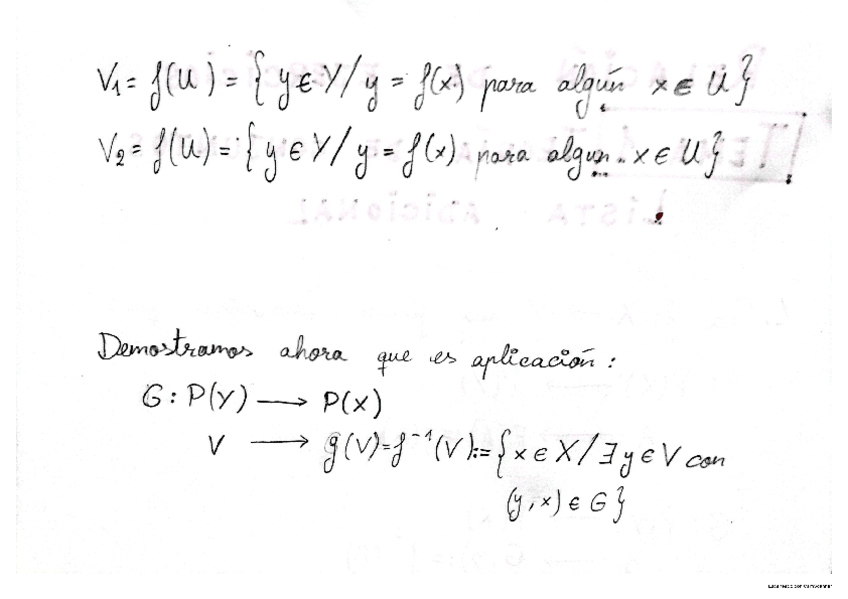 V₁ = f(U) = { y ∈ Y / y = f(x) para algún x ∈ U }
V₂ = f(U) = { y ∈ Y / y = f(x) para algun x ∈ U }
LISTA ADICIONAL
Demostramos ahora que es aplicación :
G : P(Y) ⟶ P(X)
V ⟶ g(V) = f⁻¹(V) := { x ∈ X / ∃ y ∈ V con
(y, x) ∈ G }